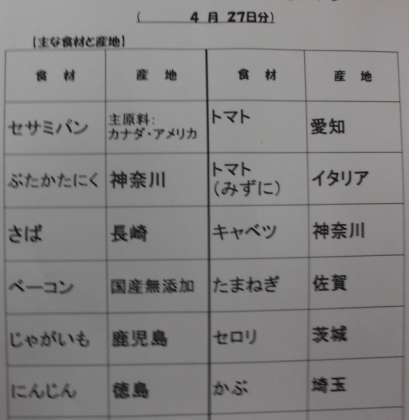 ( 4 月 27日分)
【主な食材と産地】
食 材 産 地 食 材 産 地
セサミパン 主原料: カナダ・アメリカ トマト 愛知
ぶたかたにく 神奈川 トマト (みずに) イタリア
さば 長崎 キャベツ 神奈川
ベーコン 国産無添加 たまねぎ 佐賀
じゃがいも 鹿児島 セロリ 茨城
にんじん 徳島 かぶ 埼玉